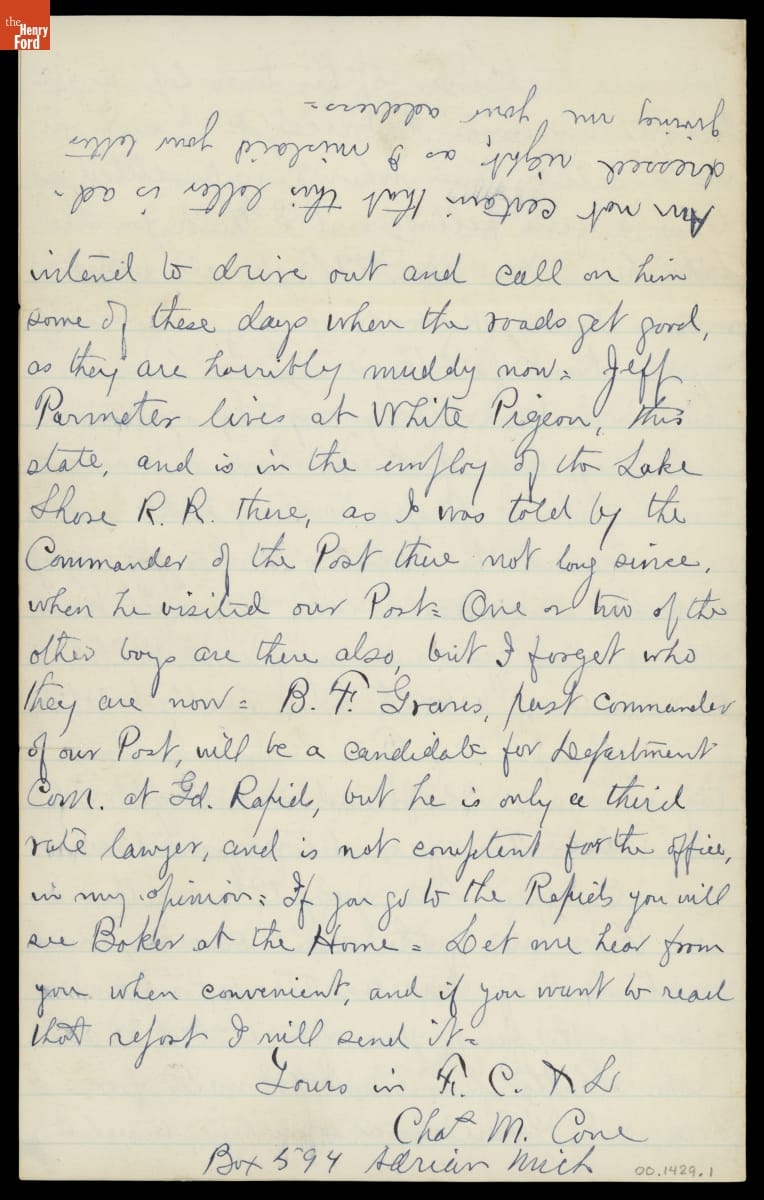 the
Henry
Ford
Am not certain that this letter is ad-
dressed right, as I mislaid your letter
giving me your address =
intend to drive out and call on him
some of these days when the roads get good,
as they are horribly muddy now = Jeff
Parmeter lives at White Pigeon, this
state, and is in the employ of the Lake
Shore R. R. there, as I was told by the
Commander of the Post there not long since,
when he visited our Post = One or two of the
other boys are there also, but I forget who
they are now = B. F. Graves, past commander
of our Post, will be a candidate for Department
Com. at Gd. Rapids, but he is only a third
rate lawyer, and is not competent for the office,
in my opinion = If you go to the Rapids you will
see Baker at the Home = Let me hear from
you when convenient, and if you want to read
that report I will send it =
Yours in F. C. & L
Chas M. Cone
Box 594 Adrian Mich
00.1429.1